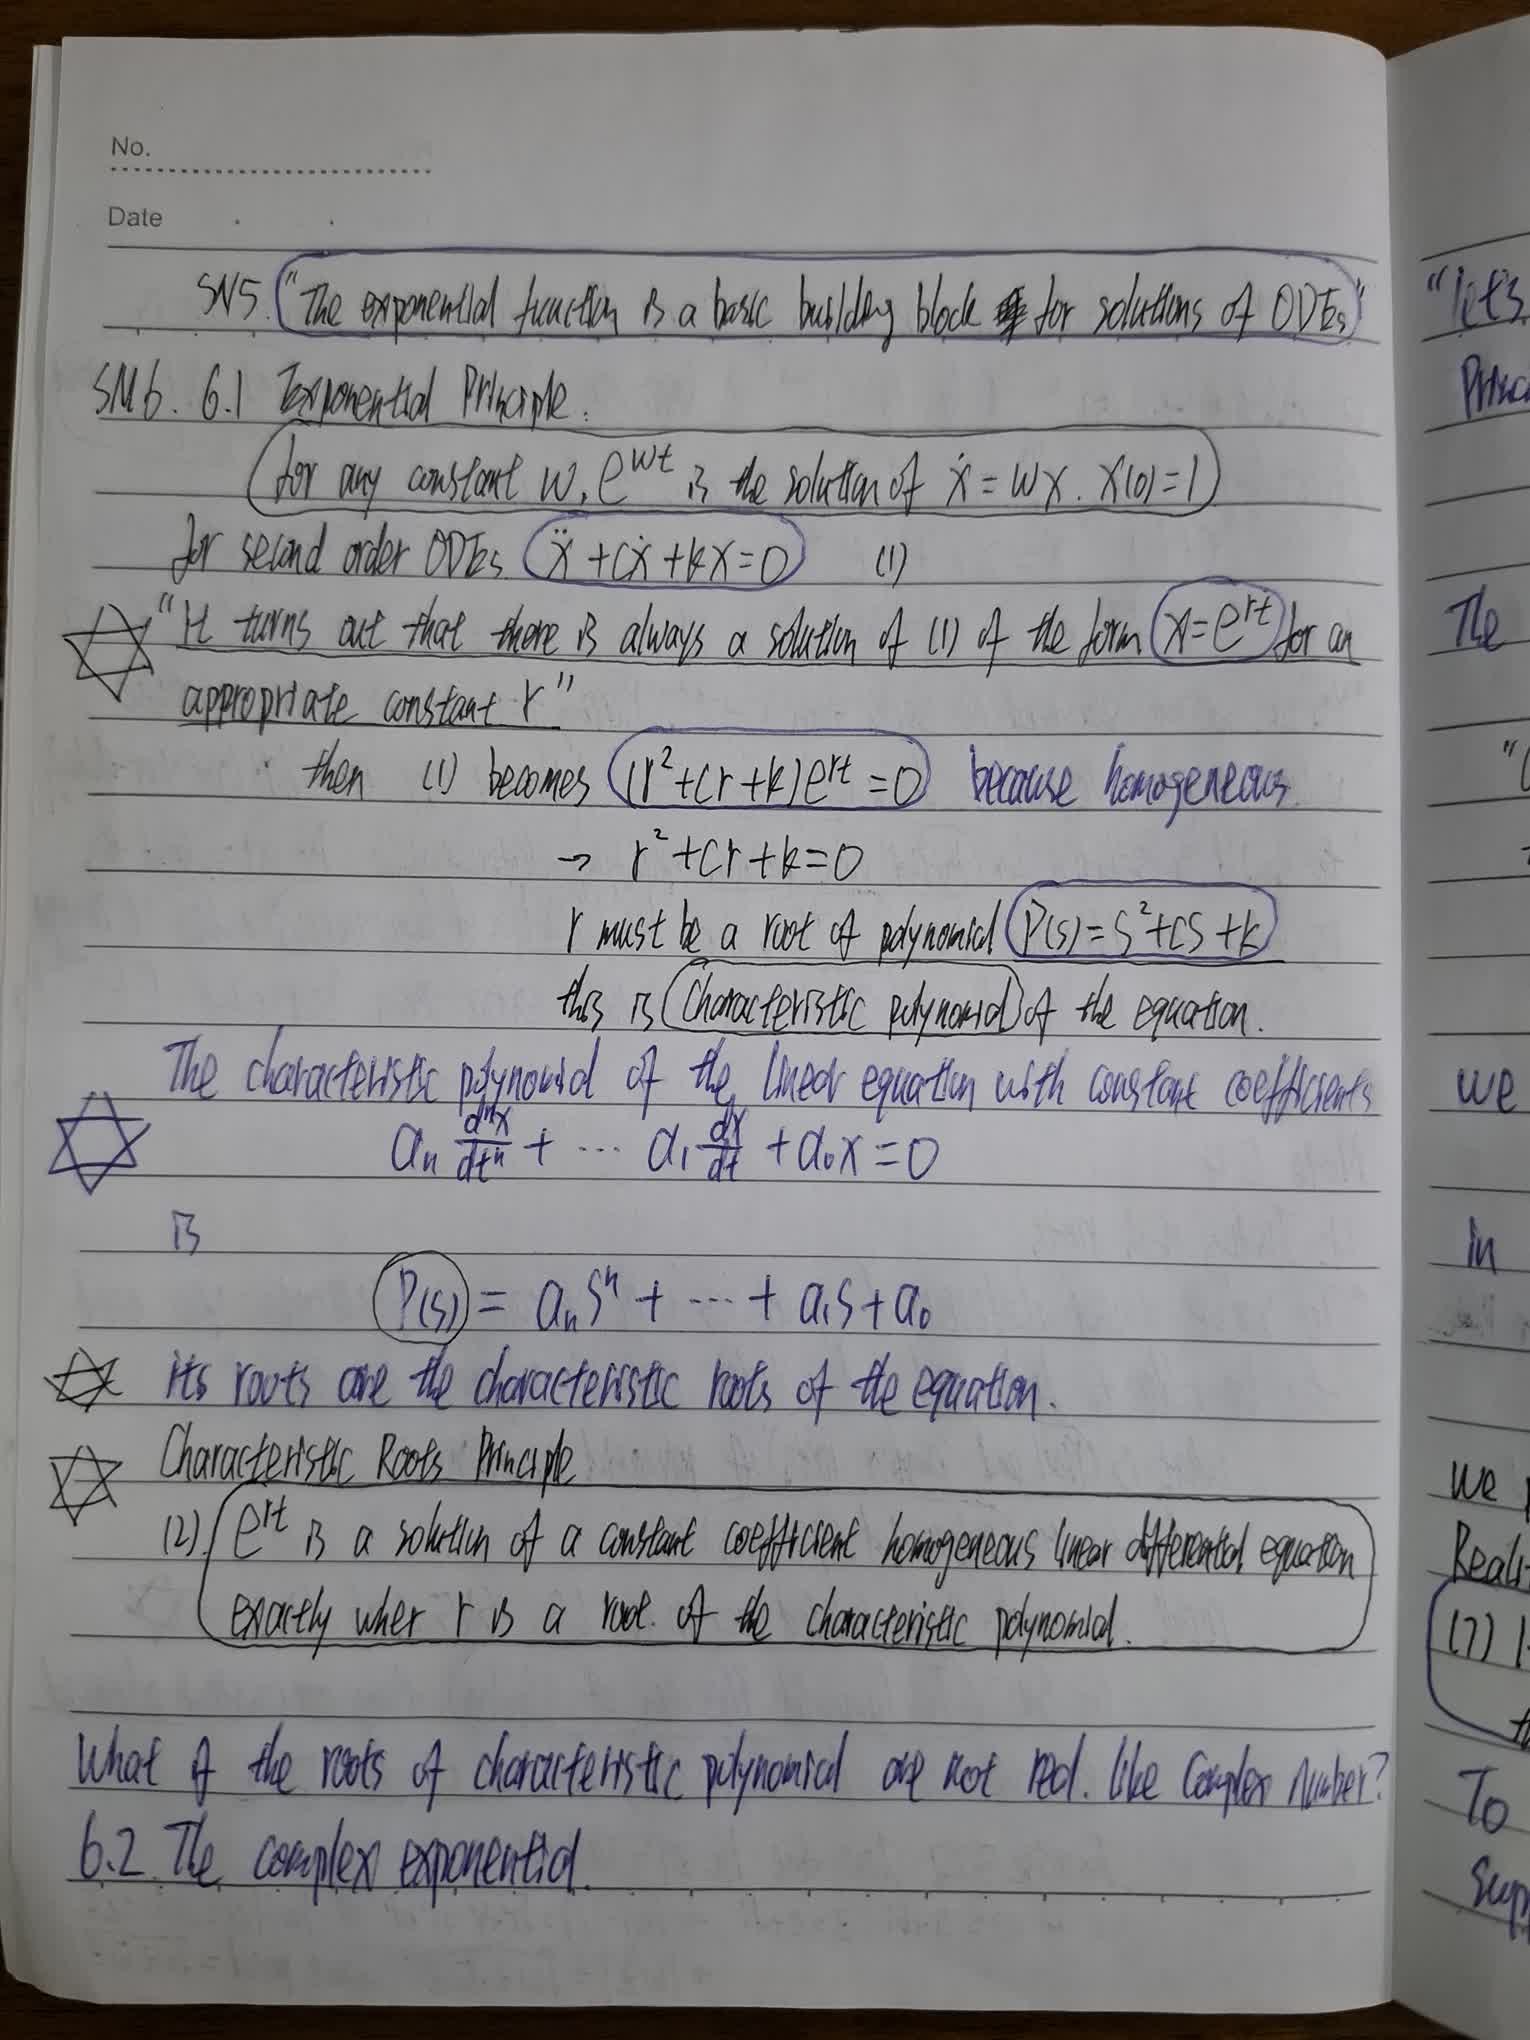 No.
Date
SN5. "The exponential function is a basic building block for solutions of ODEs"
SN6. 6.1 Exponential Principle.
for any constant w, e^{wt} is the solution of ẋ = wx. x(0)=1
for second order ODEs ẍ + cẋ + kx = 0 (1)
"It turns out that there is always a solution of (1) of the form x = e^{rt} for an
appropriate constant r"
then (1) becomes (r²+cr+k)e^{rt} = 0 because homogeneous.
→ r²+cr+k=0
r must be a root of polynomial P(s) = s²+cs+k
this is characteristic polynomial of the equation.
The characteristic polynomial of the linear equation with constant coefficients
a_n d^n x/dt^n + ... a_1 dx/dt + a_0 x = 0
is
P(s) = a_n s^n + ... + a_1 s + a_0
its roots are the characteristic roots of the equation.
Characteristic Roots Principle
(2). e^{rt} is a solution of a constant coefficient homogeneous linear differential equation
exactly when r is a root. of the characteristic polynomial.
What if the roots of characteristic polynomial are not real. like complex number?
6.2. The complex exponential.
"let's
The
we
in
we
(7)
To